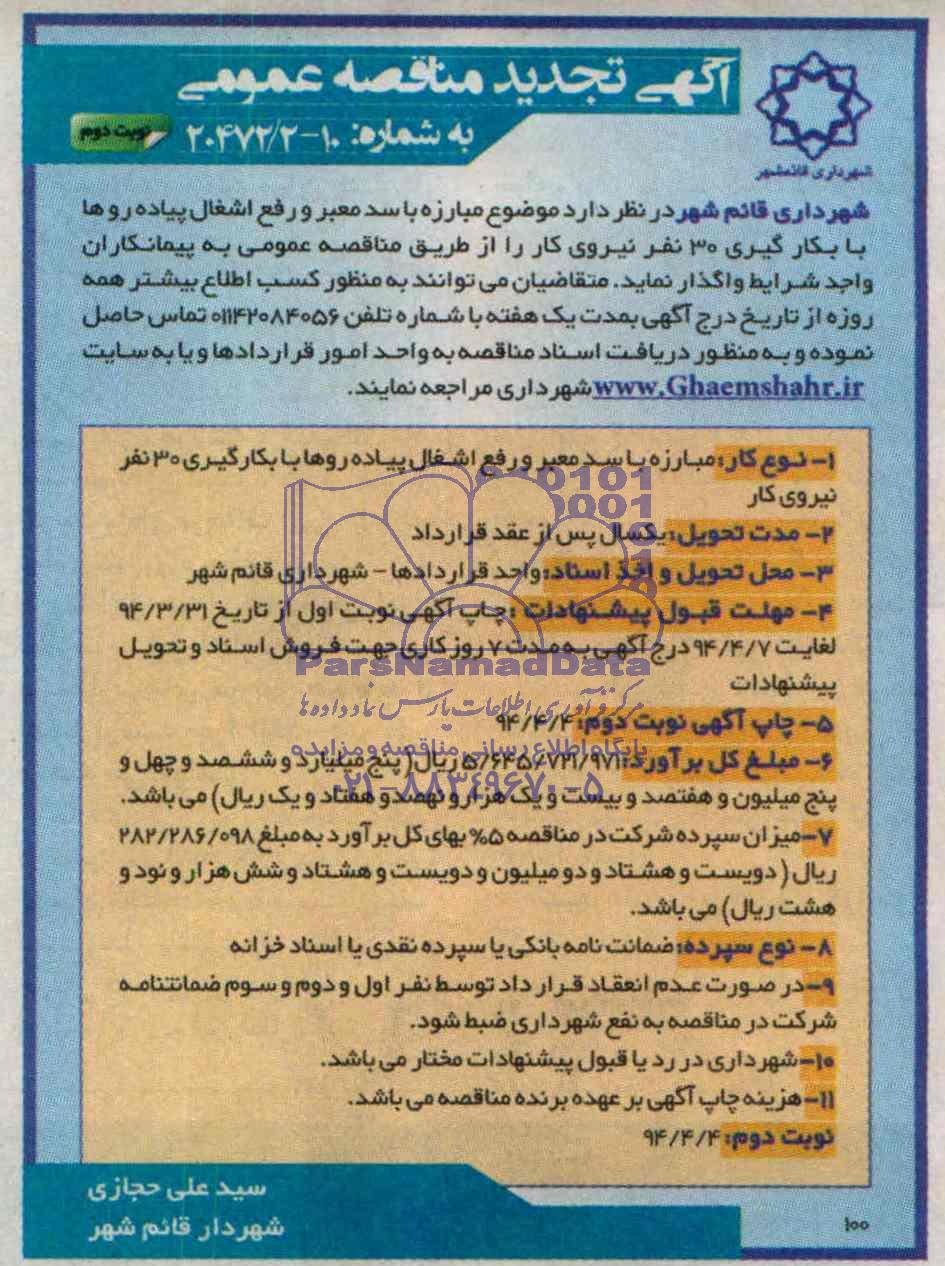 آگهی تجدید مناقصه عمومی
به شماره: ۱۰-۲۰۴۷۲/۲
نوبت دوم
شهرداری قائمشهر
شهرداری قائم شهر در نظر دارد موضوع مبارزه با سد معبر و رفع اشغال پیاده رو ها
با بکار گیری ۳۰ نفر نیروی کار را از طریق مناقصه عمومی به پیمانکاران
واجد شرایط واگذار نماید. متقاضیان می توانند به منظور کسب اطلاع بیشتر همه
روزه از تاریخ درج آگهی بمدت یک هفته با شماره تلفن ۰۱۱۴۲۰۸۴۰۵۶ تماس حاصل
نموده و به منظور دریافت اسناد مناقصه به واحد امور قراردادها و یا به سایت
www.Ghaemshahr.ir شهرداری مراجعه نمایند.
۱- نوع کار: مبارزه با سد معبر و رفع اشغال پیاده روها با بکارگیری ۳۰ نفر
نیروی کار
۲- مدت تحویل: یکسال پس از عقد قرارداد
۳- محل تحویل و اخذ اسناد: واحد قراردادها - شهرداری قائم شهر
۴- مهلت قبول پیشنهادات: چاپ آگهی نوبت اول از تاریخ ۹۴/۳/۳۱
لغایت ۹۴/۴/۷ درج آگهی به مدت ۷ روز کاری جهت فروش اسناد و تحویل
پیشنهادات
۵- چاپ آگهی نوبت دوم: ۹۴/۴/۴
۶- مبلغ کل برآورد: ۵/۶۴۵/۷۲۱/۹۷۱ ریال( پنج میلیارد و ششصد و چهل و
پنج میلیون و هفتصد و بیست و یک هزار و نهصد و هفتاد و یک ریال) می باشد.
۷- میزان سپرده شرکت در مناقصه ۵% بهای کل برآورد به مبلغ ۲۸۲/۲۸۶/۰۹۸
ریال ( دویست و هشتاد و دو میلیون و دویست و هشتاد و شش هزار و نود و
هشت ریال) می باشد.
۸- نوع سپرده: ضمانت نامه بانکی یا سپرده نقدی یا اسناد خزانه
۹- در صورت عدم انعقاد قرار داد توسط نفر اول و دوم و سوم ضمانتنامه
شرکت در مناقصه به نفع شهرداری ضبط شود.
۱۰- شهرداری در رد یا قبول پیشنهادات مختار می باشد.
۱۱- هزینه چاپ آگهی بر عهده برنده مناقصه می باشد.
نوبت دوم: ۹۴/۴/۴
ParsNamadData
مرکز فرآوری اطلاعات پارس نماد داده ها
پایگاه اطلاع رسانی مناقصه و مزایده
۰۲۱-۸۸۳۴۹۶۷۰-۵
سید علی حجازی
شهردار قائم شهر
۱۰۰